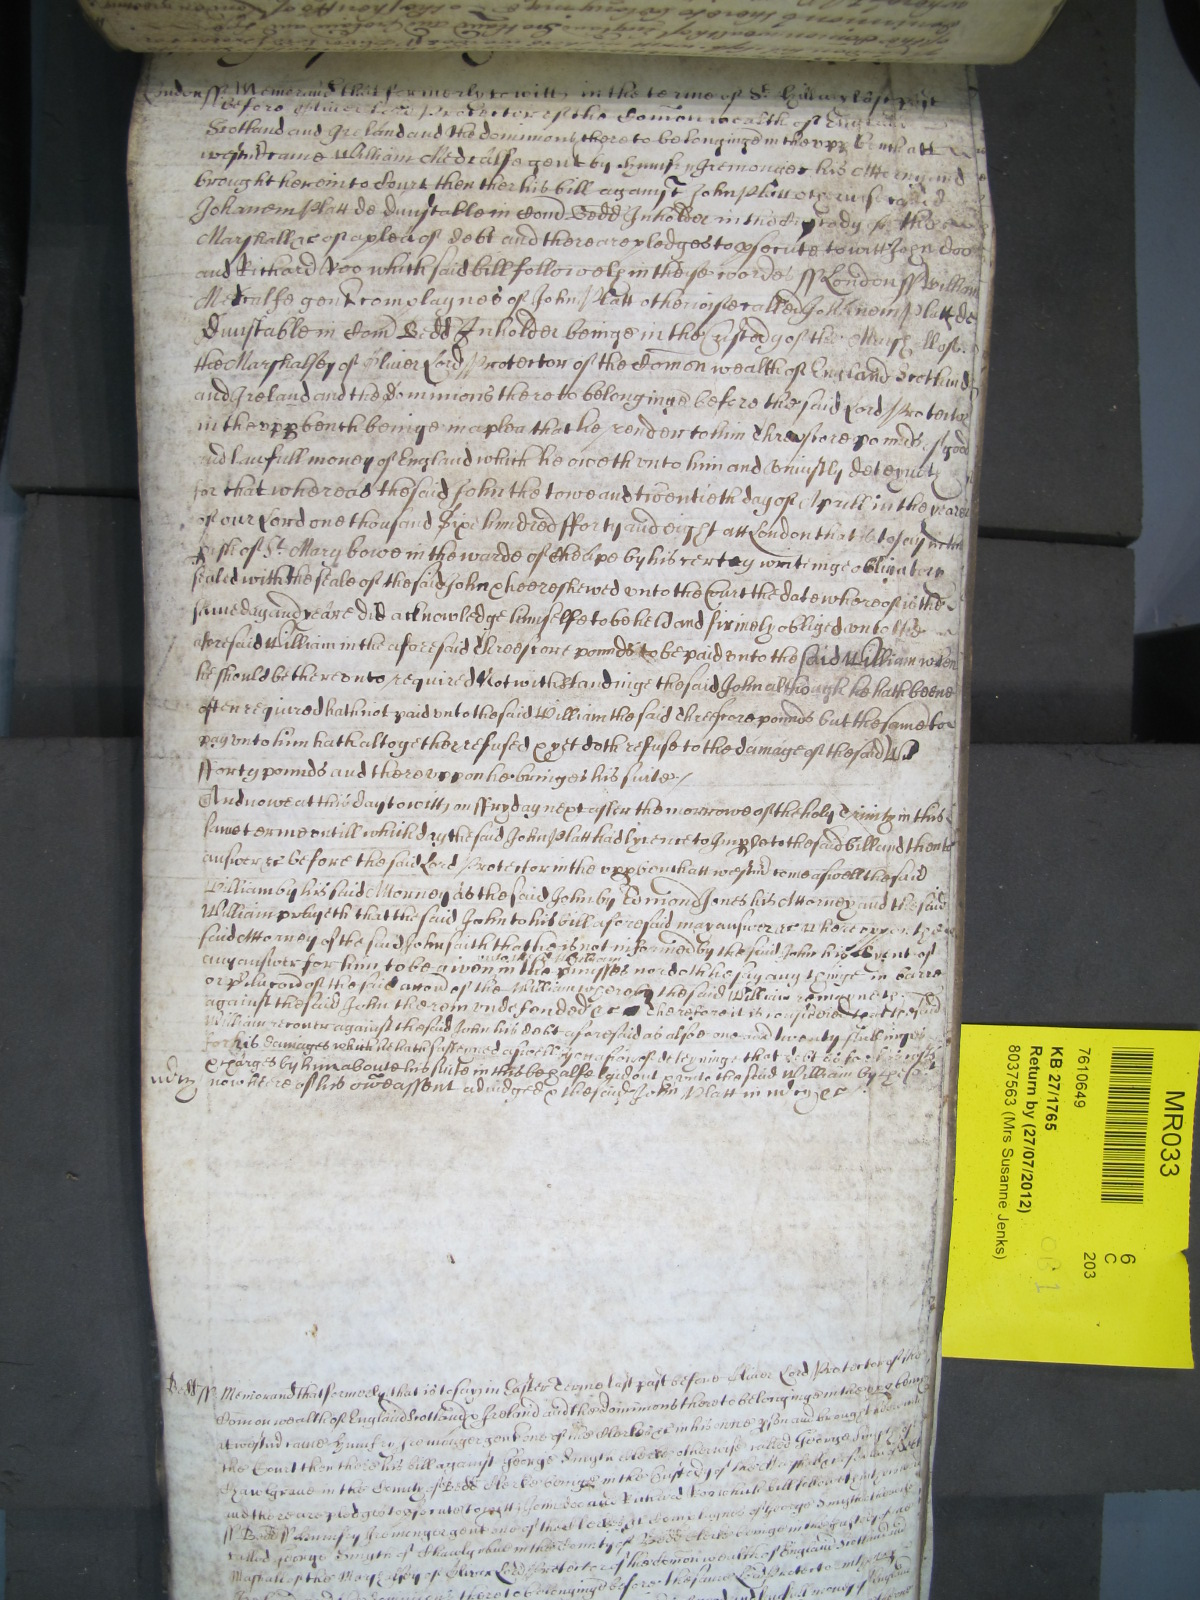 London ss Memorand that formerly to witt in the terme of St Hillary last past
before Oliver Lord Protector of the Comon wealth of England
Scotland and Ireland and the dominions thereto belonginge in the vpp bench att
westmr came William Medcalfe gent by Humfry Iremonger his Attorny and
brought here into Court then ther his bill against John Platt otherwise called
Johannem Platt de Dunstable in Com Bedd Inholder in the Custody of the
Marshall &c of a plea of debt and there are pledges to psecute to witt John Doo
and Richard Roo which said bill followeth in these words ss London ss William
Metcalfe gent complaynes of John Platt otherwise called Johannem Platt de
Dunstable in Com Bedd Inholder beinge in the Custody of the Marshall of
the Marshalsey of Oliver Lord Protector of the Comon wealth of England Scotland
and Ireland and the dominions thereto belonginge before the said Lord Protector
in the vpp bench beinge in a plea that he render to him threescore pounds of good
and lawfull money of England which he oweth vnto him and vniustly deteyneth
for that whereas the said John the towe and twentieth day of Aprill in the yeare
of our Lord one thousand sixe hundred fforty and eight att London that is to say in the
pish of St Mary bowe in the warde of Cheape by his certey writinge obligatory
sealed with the seale of the said John & heere shewed vnto the Court the date whereof is the
same day and yeare did acknowledge himselfe to be held and firmely obliged vnto the
aforesaid William in the aforesaid threescore pounds to be paid vnto the said William when
he should be therevnto required Notwithstandinge the said John although he hath beene
often required hath not paid vnto the said William the said threescore pounds but the same to
pay vnto him hath altogether refused & yet doth refuse to the damage of the said Wi
fforty pounds and therevppon he bringes his suite /
And nowe at this day to witt on ffryday next after the morrowe of the holy Trinity in this
same terme vntill which day the said John Platt had lycence to Imple to the said bill and then to
answer &c before the said Lord Protector in the vpp bench att westmr come aswell the said
William by his said Attorney as the said John by Edmond Jones his Attorney and the said
William prayeth that the said John to his bill aforesaid may answer &c wherevppon the
said Attorney of the said John saith that he is not informed by the said John his Clyent of
any answer for him to be given in the pmisses nor doth he say any thinge in barre
or of the said accon of the William whereby the said William remayneth
against the said John therein vndefended &c Therefore it is considered that the said
William recouer against the said John his debt aforesaid as alsoe one and twenty shillings
for his damages which he hath susteyned aswell by occasion of deteyninge that debt as for his costs
& charges by him about his suite in this behalfe laid out & vnto the said William by the
now here of his owne assent adiudged & the said John Platt in mcy &c
mcy
Bedd ss Memorand that formerly that is to say in Easter Terme last past before Oliver Lord Protector of the
Comon wealth of England Scotland & Ireland and the dominions thereto belonginge in the vpp bench
at westmr came Humfry Iremonger gent one of the Clerkes &c in his owne pson and brought here into
the Court then there his bill against George Smyth Clerke otherwise called George Smyth of
in the County of Bedd Clerke beinge in the Custody of the Marshall &c
and there are pledges to psecute to witt John Doo and Richard Roo which bill followeth
ss Bedd ss Humfry Iremonger gent one of the Clerkes &c complaynes of George Smyth
called George Smyth of in the County of Bedd Clerke beinge in the custody of
Marshall of the Marshalsey of Oliver Lord Protector of the Comon wealth of England Scotland and
thereto belonginge before the same Lord Protector
MR033
7610649
6
C
203
KB 27/1765
Return by (27/07/2012)
8037563 (Mrs Susanne Jenks)